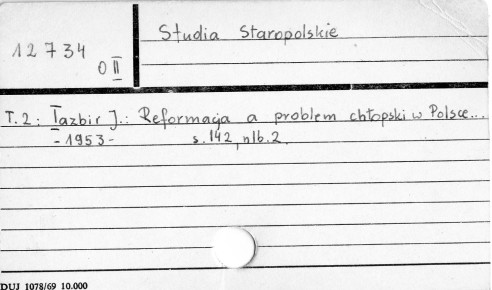 Studia Staropolskie
12734
O II
T. 2: Tazbir J.: Reformacja a problem chłopski w Polsce...
- 1953 - s. 142, nlb. 2.
DUJ 1078/69 10.000